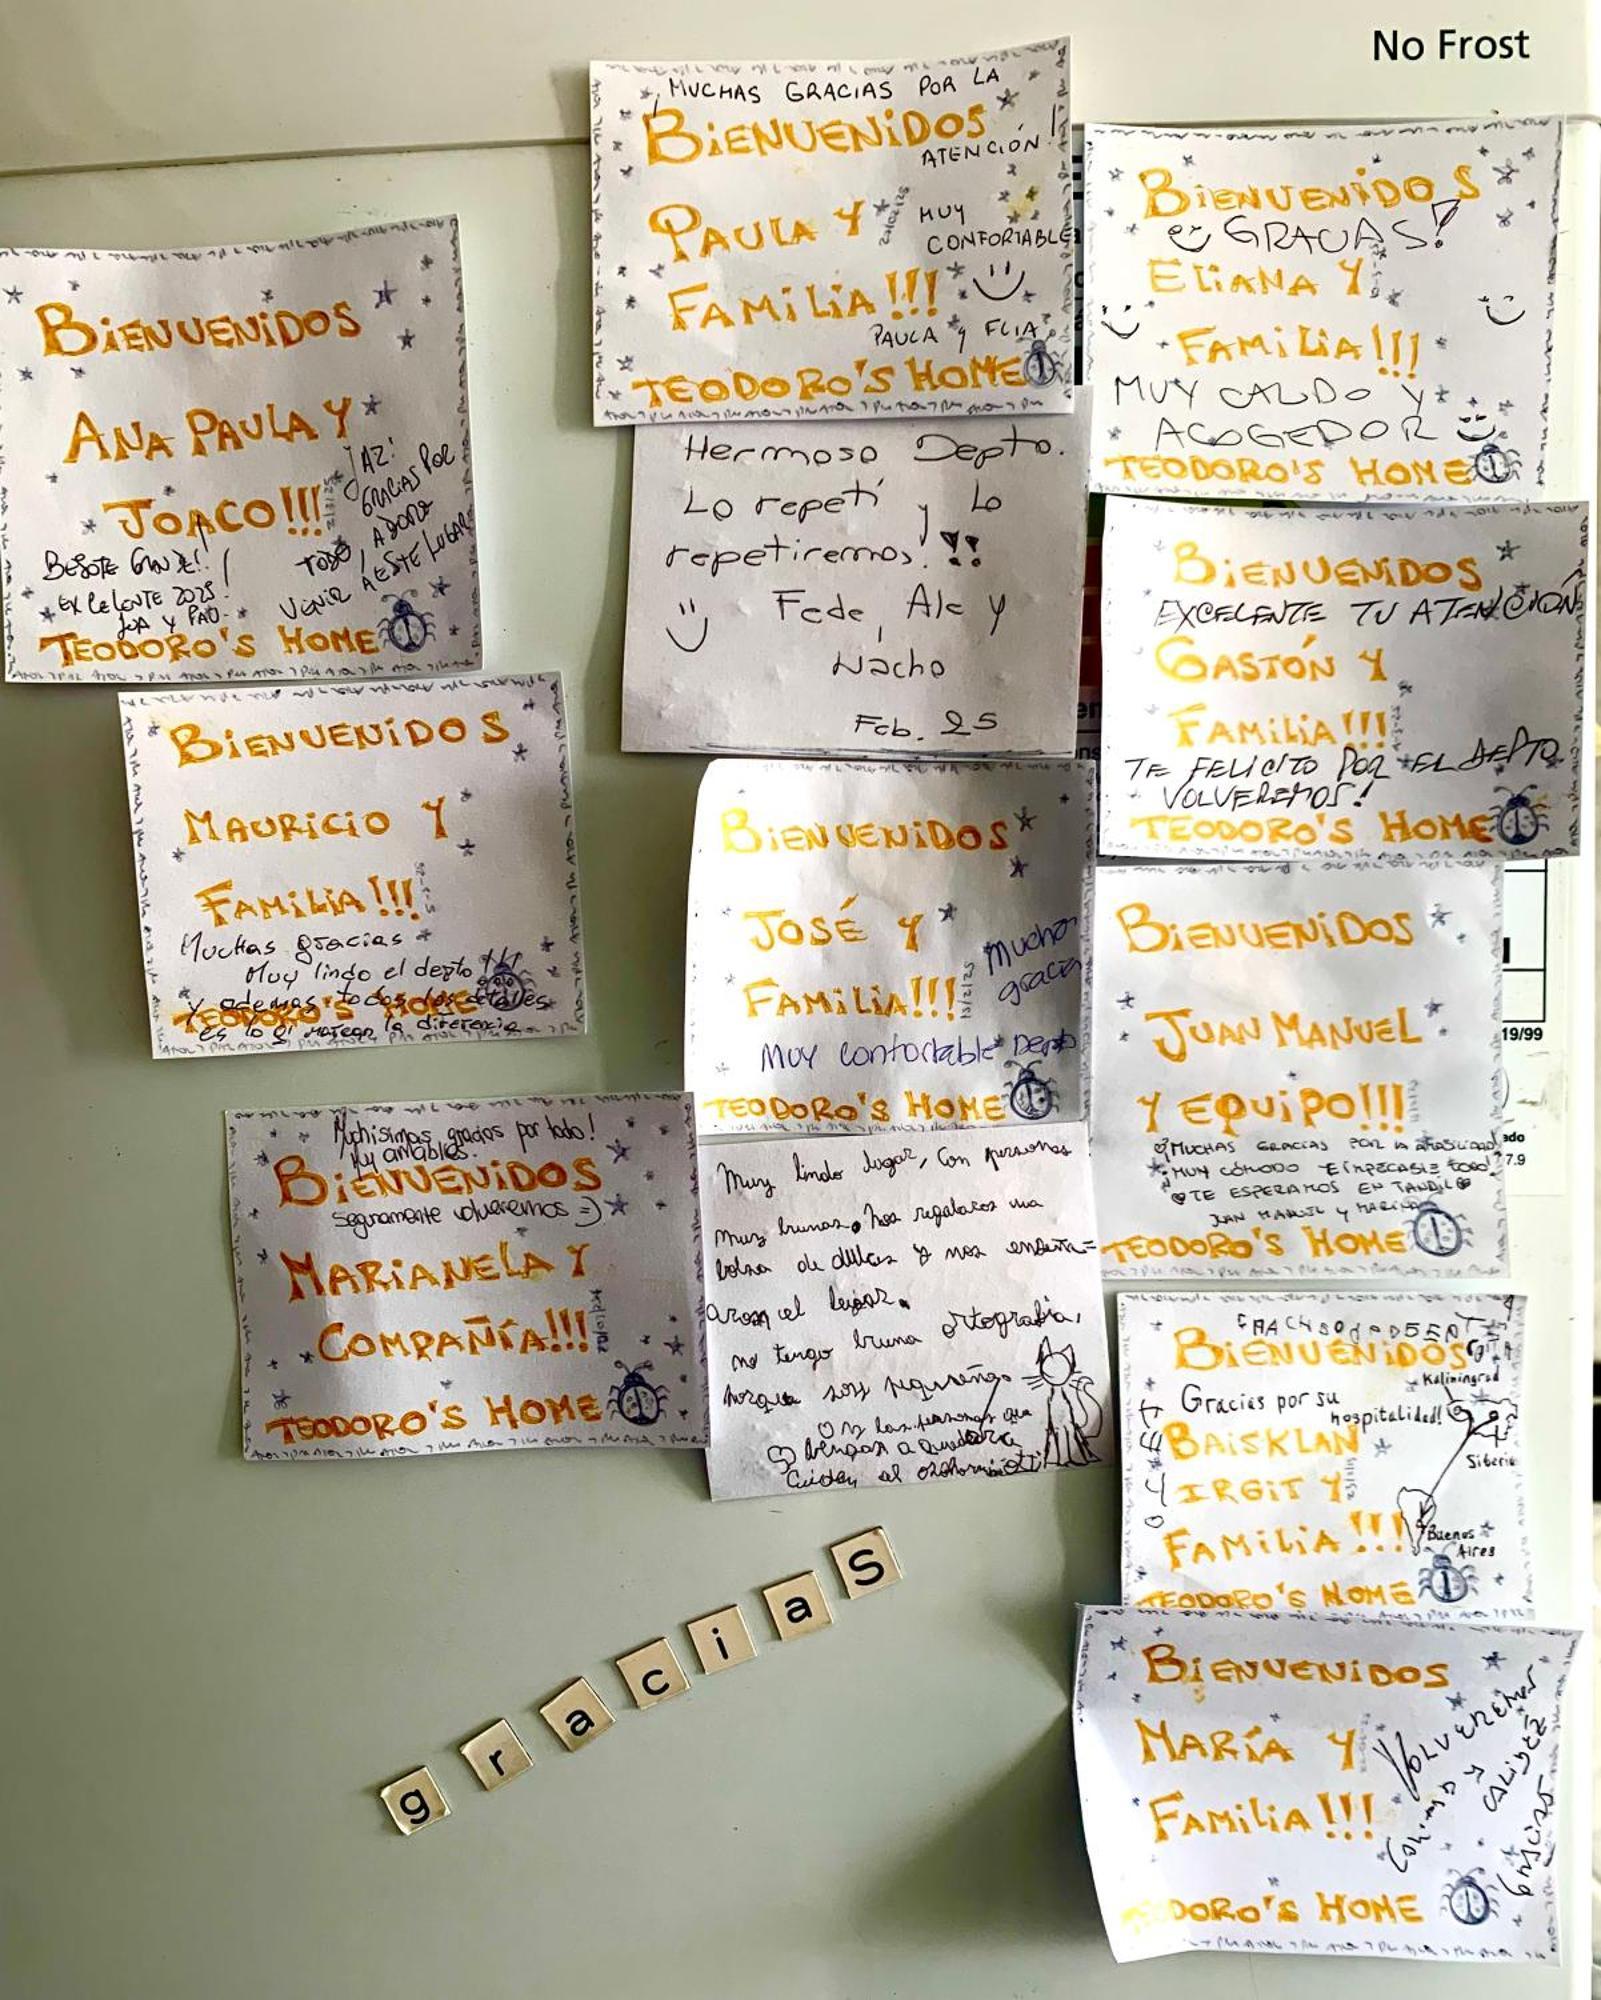 No Frost
¡MUCHAS GRACIAS POR LA
BiENUENiDOS
ATENCIÓN!
PAULA Y
MUY
CONFORTABLE
FAMiLiA!!!
PAULA Y FLIA
TEODORO'S HOME
BiENUENiDOS
GRACIAS!
ELiANA Y
FAMiLiA!!!
MUY CALIDO Y
ACOGEDOR
TEODORO'S HOME
BiENUENiDOS
ANA PAULA Y
JOACO!!!
JAZ!
GRACIAS POR
TODO
ADORO
VENIR A ESTE LUGAR
EXCELENTE 2025!
JOA Y PAU.
TEODORO'S HOME
Hermoso Depto.
Lo repetí y Lo
repetiremos!!!
Fede, Ale y
Nacho
Feb. 25
BiENUENiDOS
EXCELENTE TU ATENCIÓN
GASTÓN Y
FAMiLiA!!!
TE FELICITO POR EL DEPTO
VOLVEREMOS!
TEODORO'S HOME
BiENUENiDOS
MAURiCiO Y
FAMiLiA!!!
Muchas gracias
Muy lindo el depto!!!
y ademas todos los detalles
es lo q' marcan la diferencia
TEODORO'S HOME
BiENUENiDOS
JOSÉ Y
FAMiLiA!!!
13/2/25
Muchas
gracias
MUY confortable Depto
TEODORO'S HOME
BiENUENiDOS
JUAN MANUEL
Y EQUiPO!!!
MUCHAS GRACIAS POR LA AMABILIDAD
MUY CÓMODO E IMPECABLE TODO!
TE ESPERAMOS EN TANDIL
JUAN MANUEL Y MARINA
TEODORO'S HOME
19/99
7.9
Muchisimas gracias por todo!
Muy amables.
BiENUENiDOS
seguramente volveremos =)
MARiANELA Y
COMPAÑÍA!!!
TEODORO'S HOME
Muy lindo lugar, con personas
muy buenas. Nos regalaron una
bolsa de dulces y nos enseña=
aron el lugar.
no tengo buena ortografia,
porque soy pequeño
BiENUENiDOS
Kaliningrad
Gracias por su
hospitalidad!
BAiSKLAN
Siberia
IRGiT Y
FAMiLiA!!!
Buenos
Aires
TEODORO'S HOME
BiENUENiDOS
MARÍA Y
FAMiLiA!!!
VOLVEREMOS
CALIDEZ
TEODORO'S HOME
g r a c i a s